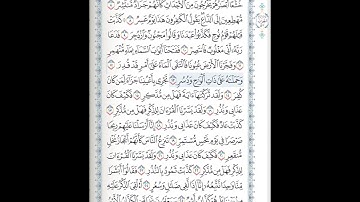 خُشَّعًا أَبْصَٰرُهُمْ يَخْرُجُونَ مِنَ ٱلْأَجْدَاثِ كَأَنَّهُمْ جَرَادٌ مُّنتَشِرٌ ٧
مُّهْطِعِينَ إِلَى ٱلدَّاعِ يَقُولُ ٱلْكَٰفِرُونَ هَٰذَا يَوْمٌ عَسِرٌ ٨ كَذَّبَتْ
قَبْلَهُمْ قَوْمُ نُوحٍ فَكَذَّبُوا۟ عَبْدَنَا وَقَالُوا۟ مَجْنُونٌ وَٱزْدُجِرَ ٩ فَدَعَا
رَبَّهُۥٓ أَنِّى مَغْلُوبٌ فَٱنتَصِرْ ١٠ فَفَتَحْنَآ أَبْوَٰبَ ٱلسَّمَآءِ بِمَآءٍ مُّنْهَمِرٍ
١١ وَفَجَّرْنَا ٱلْأَرْضَ عُيُونًا فَٱلْتَقَى ٱلْمَآءُ عَلَىٰٓ أَمْرٍ قَدْ قُدِرَ ١٢
وَحَمَلْنَٰهُ عَلَىٰ ذَاتِ أَلْوَٰحٍ وَدُسُرٍ ١٣ تَجْرِى بِأَعْيُنِنَا جَزَآءً لِّمَن كَانَ
كُفِرَ ١٤ وَلَقَد تَّرَكْنَٰهَآ ءَايَةً فَهَلْ مِن مُّدَّكِرٍ ١٥ فَكَيْفَ كَانَ
عَذَابِى وَنُذُرِ ١٦ وَلَقَدْ يَسَّرْنَا ٱلْقُرْءَانَ لِلذِّكْرِ فَهَلْ مِن مُّدَّكِرٍ ١٧
كَذَّبَتْ عَادٌ فَكَيْفَ كَانَ عَذَابِى وَنُذُرِ ١٨ إِنَّآ أَرْسَلْنَا عَلَيْهِمْ رِيحًا
صَرْصَرًا فِى يَوْمِ نَحْسٍ مُّسْتَمِرٍّ ١٩ تَنزِعُ ٱلنَّاسَ كَأَنَّهُمْ أَعْجَازُ نَخْلٍ
مُّنقَعِرٍ ٢٠ فَكَيْفَ كَانَ عَذَابِى وَنُذُرِ ٢١ وَلَقَدْ يَسَّرْنَا ٱلْقُرْءَانَ
لِلذِّكْرِ فَهَلْ مِن مُّدَّكِرٍ ٢٢ كَذَّبَتْ ثَمُودُ بِٱلنُّذُرِ ٢٣ فَقَالُوٓا۟ أَبَشَرًا
مِّنَّا وَٰحِدًا نَّتَّبِعُهُۥٓ إِنَّآ إِذًا لَّفِى ضَلَٰلٍ وَسُعُرٍ ٢٤ أَءُلْقِىَ ٱلذِّكْرُ عَلَيْهِ